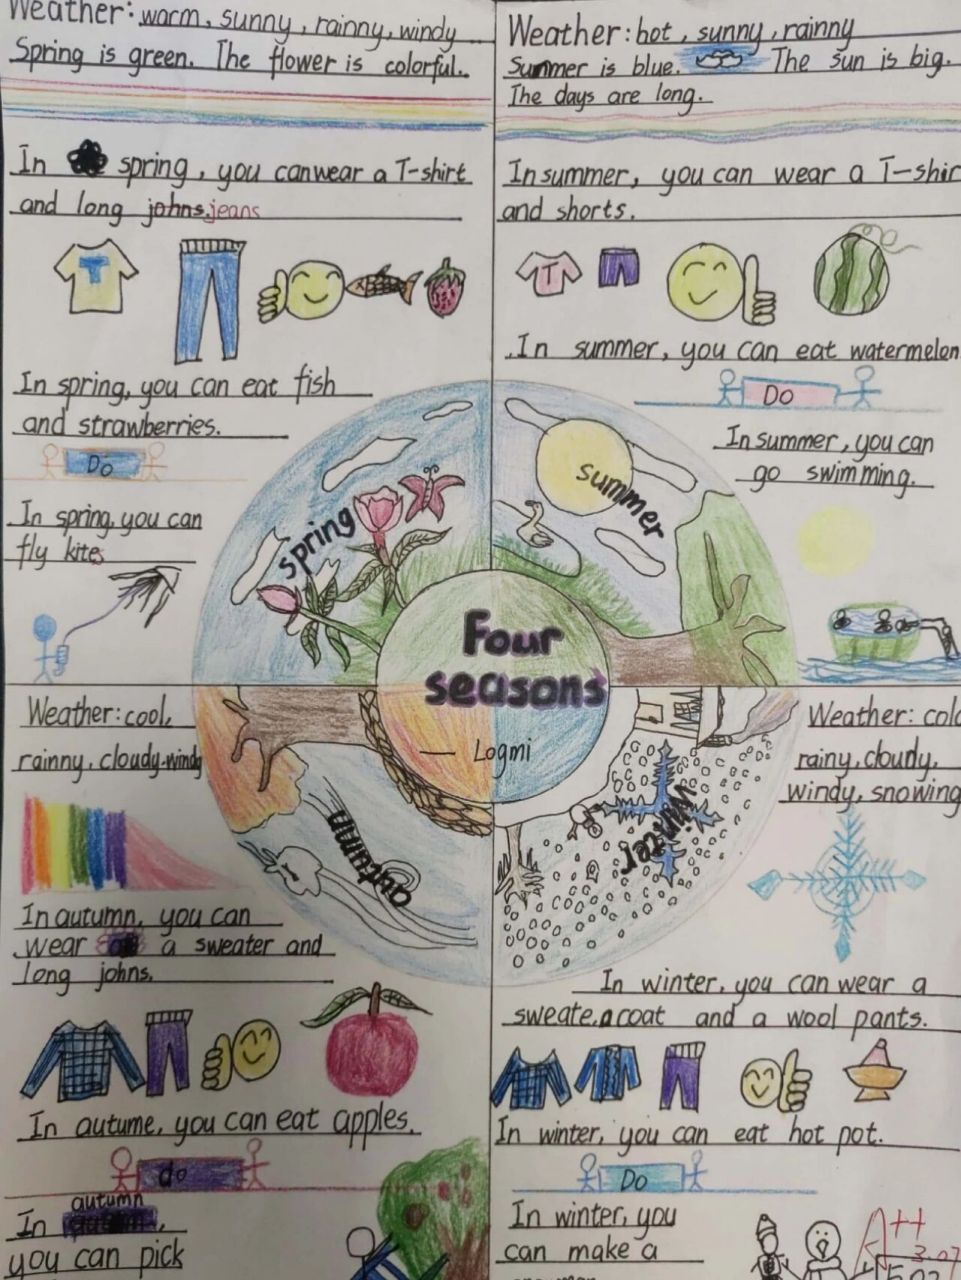 Weather: warm, sunny, rainny, windy
Spring is green. The flower is colorful.
In spring, you can wear a T-shirt
and long johns. jeans
In spring, you can eat fish
and strawberries.
Do
In spring, you can
fly kites
Weather: hot, sunny, rainny
Summer is blue. The sun is big.
The days are long.
In summer, you can wear a T-shir
and shorts.
T
In summer, you can eat watermelon
Do
In summer, you can
go swimming.
spring
summer
Four
seasons
— Logmi
autumn
winter
Weather: cool,
rainny, cloudy, windy
In autumn, you can
wear a sweater and
long johns.
In autume, you can eat apples.
do
autumn
In ,
you can pick
Weather: cold
rainy, cloudy,
windy, snowing
In winter, you can wear a
sweate, a coat and a wool pants.
In winter, you can eat hot pot.
Do
In winter, you
can make a
A++